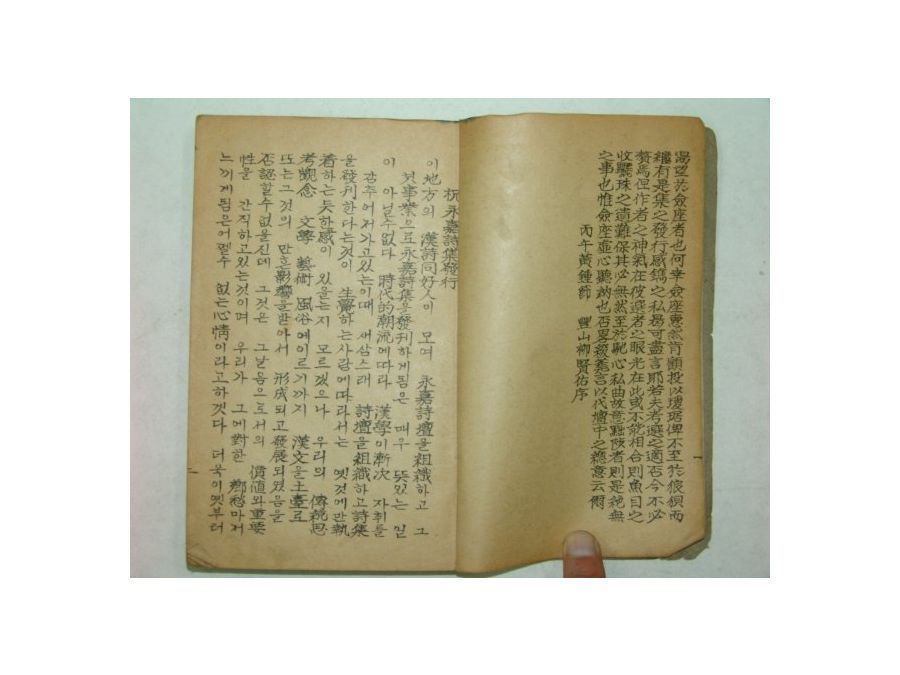 渴望於僉座者也何幸 僉座惠然肯顧投以瓊琚俾不至於狼狽而
繼有是集之發行感鐫之私曷可盡言耶若夫考選之適否今不必
贅焉但作者之神氣在彼選者之眼光在此或不能相合則魚目之
收驪珠之遺難保其必無然至於馳心私曲故意點改者則是絶無
之事也惟僉座虛心聽納也否畧綴蕪言以代壇中之總意云爾
丙午黃鍾節 豐山柳賢佑序
祝永嘉詩集發行
이 地方의 漢詩同好人이 모여 永嘉詩壇을組織하고 그
첫事業으로永嘉詩集을發刊하게됨은 매우 뜻있는 일
이 아닐수없다 時代的潮流에따라 漢學이漸次 자취를
감추어저가고있는이때 새삼스래 詩壇을組織하고詩集
을發刊한다는것이 生覺하는사람에따라서는 옛것에만執
着하는듯한感이 있을는지 모르겠으나 우리의 傳統思
考觀念 文學 藝術 風俗에이르기까지 漢文을土臺로
또는그것의 만흔影響을받아서 形成되고發展되였음을
否認할수없을진데 그것은 그날음으로서의 價値와重要
性을 간직하고있는것이며 우리가 그에對한 鄕愁마저
느끼게됨은어쩔수 없는心情이라고하겠다 더욱이옛부터